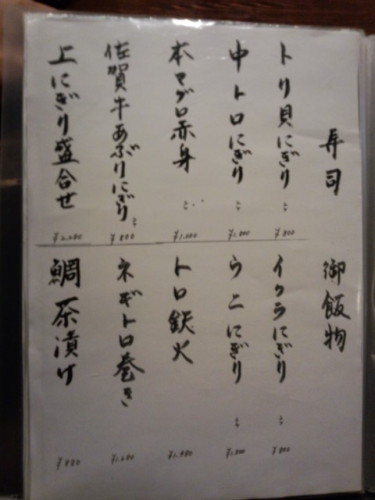 寿司
トリ貝にぎり
¥800
中トロにぎり
本マグロ赤身
佐賀牛あぶりにぎり
¥800
上にぎり盛合せ
御飯物
イクラにぎり
¥800
ウニにぎり
トロ鉄火
ネギトロ巻き
鯛茶漬け